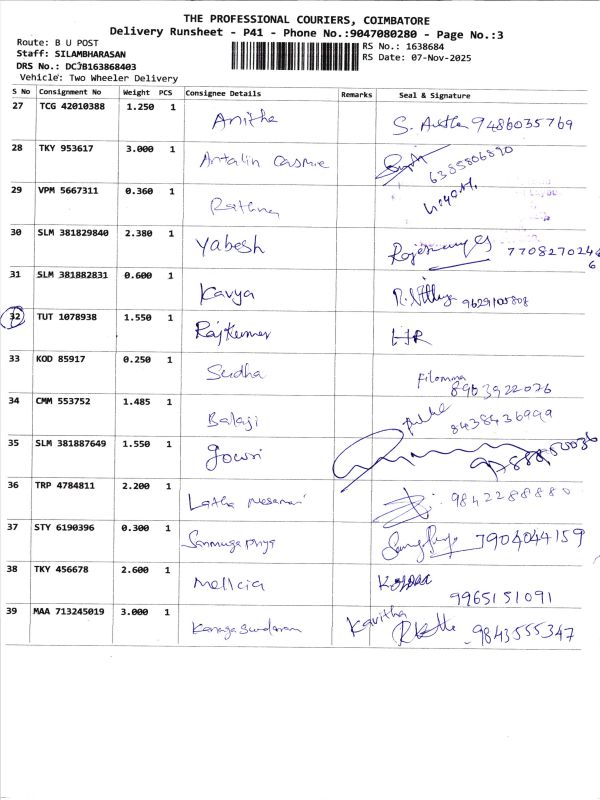 THE PROFESSIONAL COURIERS, COIMBATORE
Delivery Runsheet - P41 - Phone No.:9047080280 - Page No.:3
Route: B U POST
Staff: SILAMBHARASAN
DRS No.: DCJB163868403
Vehicle: Two Wheeler Delivery
RS No.: 1638684
RS Date: 07-Nov-2025
S No Consignment No Weight PCS Consignee Details Remarks Seal & Signature
27 TCG 42010388 1.250 1 Anitha S. 9486035769
28 TKY 953617 3.000 1 Antalin Casmie 6385806890
29 VPM 5667311 0.360 1 Rathna
30 SLM 381829840 2.380 1 Yabesh 7708270246
6
31 SLM 381882831 0.600 1 Kavya R. Nithya 9629105808
32 TUT 1078938 1.550 1 Rajkumar
33 KOD 85917 0.250 1 Sudha Filomma
8903922076
34 CMM 553752 1.485 1 Balaji 8438436999
35 SLM 381887649 1.550 1 Gowri
36 TRP 4784811 2.200 1 Latha 9842288880
37 STY 6190396 0.300 1 Sanmuga priya 7904044159
38 TKY 456678 2.600 1 Mellcia
9965151091
39 MAA 713245019 3.000 1 Kanaga Sundaram Kavitha
9843555347